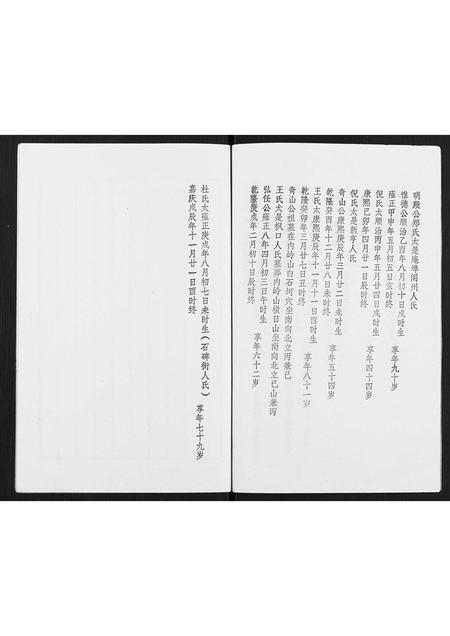 明殿公郑氏太是庵埠闺州人氏
惟德公顺治乙酉年八月初十日戌时生
雍正甲申年五月初五日亥时终 享年九十岁
倪氏太顺治丙申年五月廿四日戌时生
康熙己卯年四月廿一日辰时终 享年四十四岁
倪氏太是新亨人氏
奇山公康熙庚辰年三月廿二日未时生
乾隆癸酉年十二月廿八日未时终 享年五十四岁
王氏太康熙庚辰年十一月十一日酉时生
乾隆癸卯年三月廿七日丑时终 享年八十一岁
奇山公祖墓在内岭山白石坷穴坐南向北立丙兼巳
王氏太是枫口人氏墓葬内岭山横日山坐南向北立巳山兼丙
弘任公雍正八年四月初三日午时生
乾隆庚戌年二月初十日辰时终 享年六十二岁
杜氏太雍正庚戌年八月初七日未时生(石碑街人氏)
嘉庆戊辰年十一月廿一日酉时终 享年七十九岁